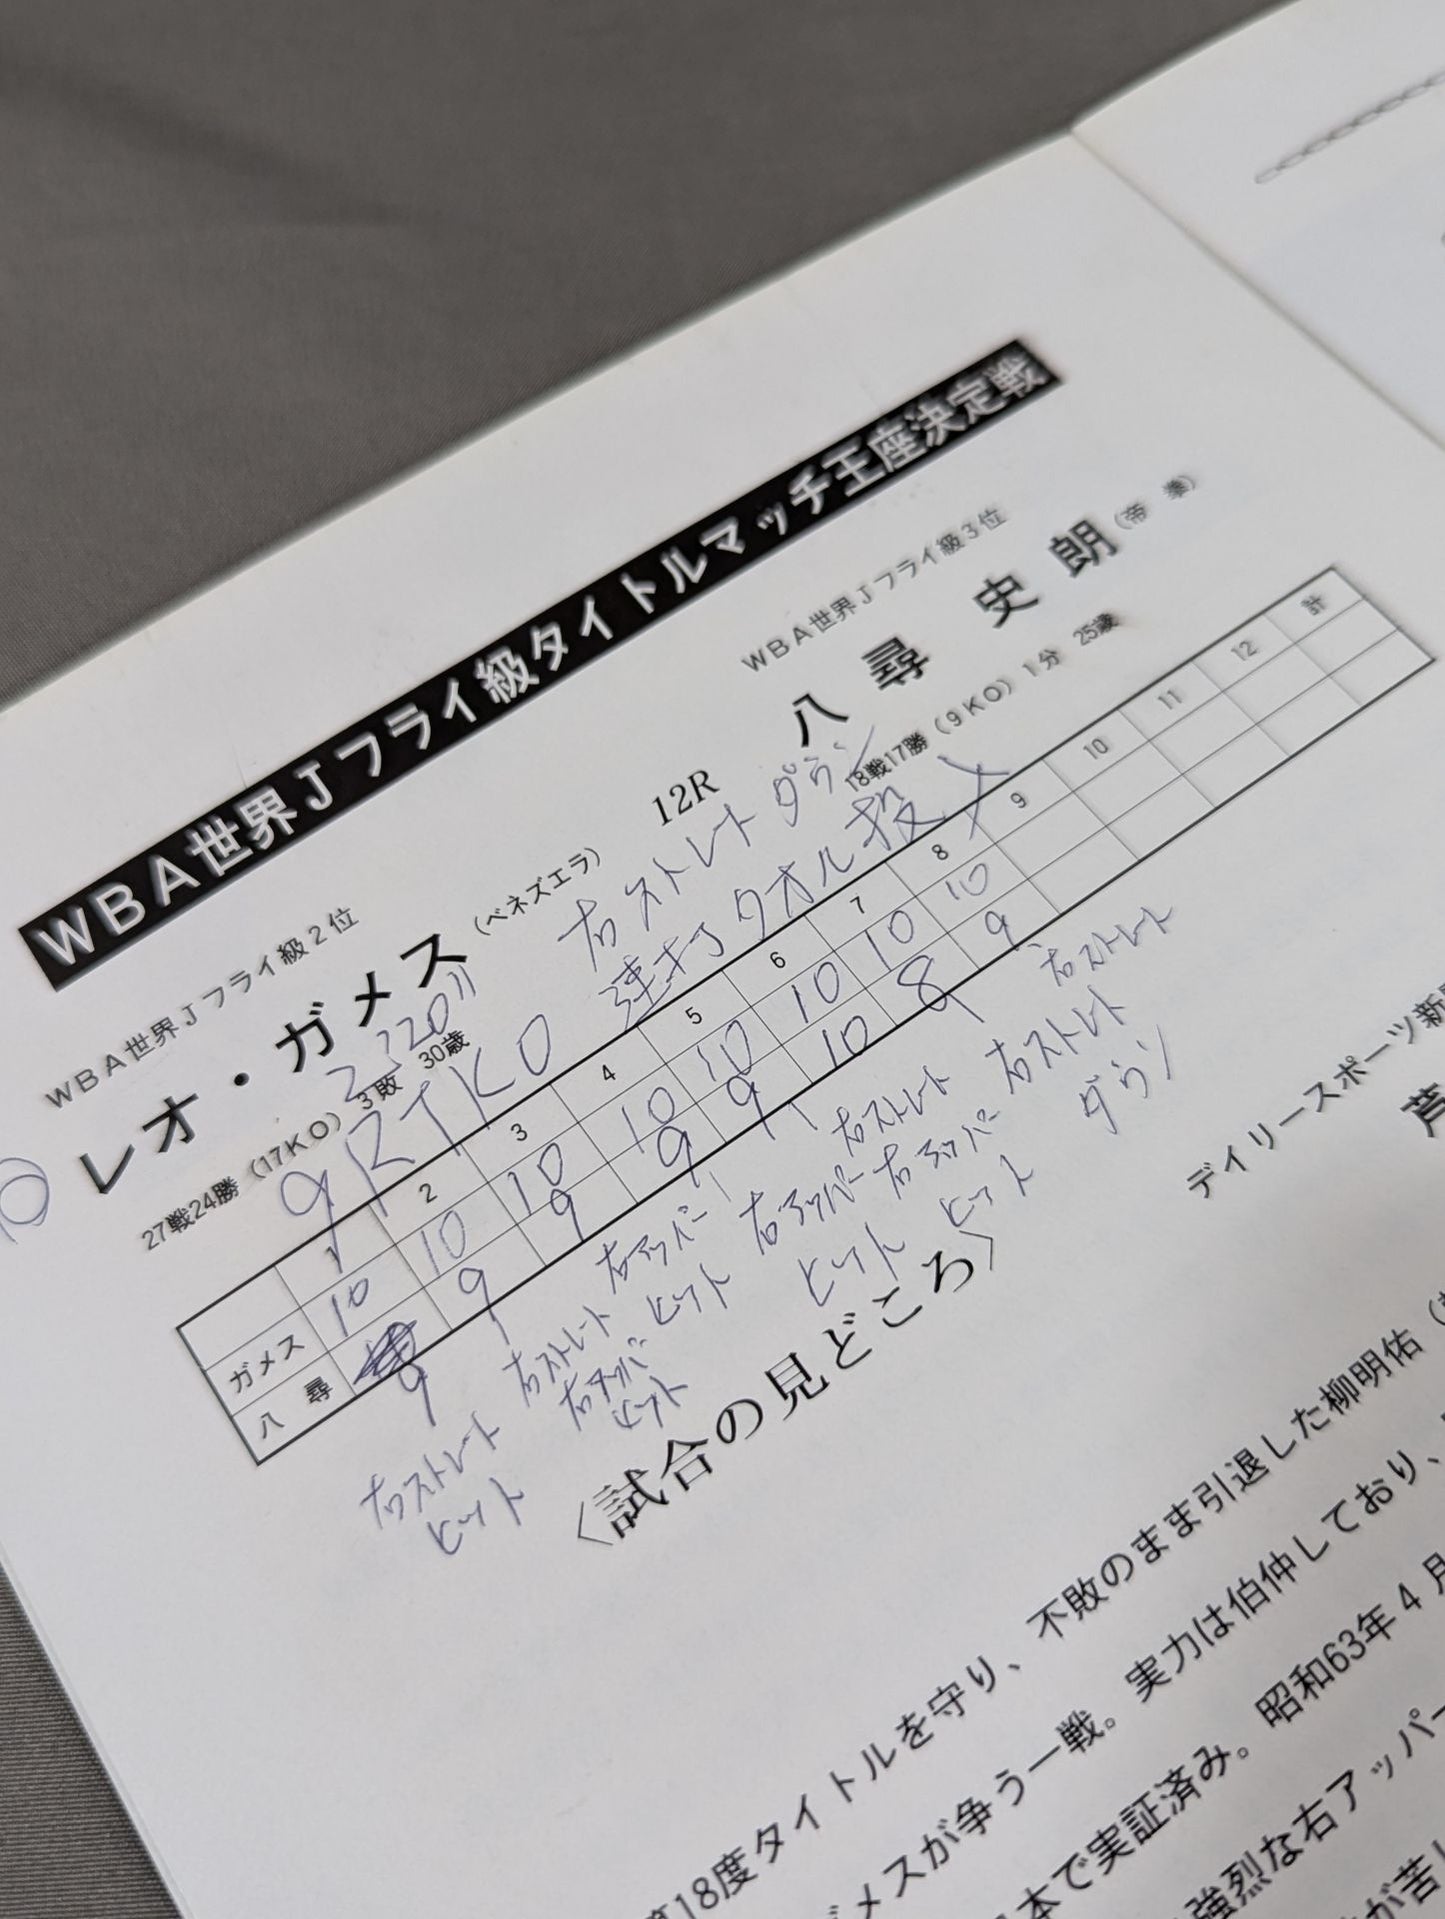 WBA世界Jフライ級タイトルマッチ王座決定戦
WBA世界Jフライ級2位
レオ・ガメス(ベネズエラ)
27戦24勝(17KO)3敗 30歳
12R
WBA世界Jフライ級3位
八尋史朗(帝拳)
18戦17勝(9KO)1分 25歳
右ストレート ダウン
連打 タオル投入
2:20"
9RTKO
1 2 3 4 5 6 7 8 9 10 11 12 計
ガメス 10 10 10 10 10 10 10 10
八尋 9 9 9 9 9 10 8 9
右ストレート
ヒット
右ストレート
右アッパー
ヒット
右アッパー
ヒット
右アッパー
右ストレート
右アッパー
ヒット
右ストレート
ヒット
右ストレート
ダウン
〈試合の見どころ〉
デイリースポーツ新
芦
18度タイトルを守り、不敗のまま引退した柳明佑(
メスが争う一戦。実力は伯仲しており、
本で実証済み。昭和63年4月
強烈な右アッパー
が苦し